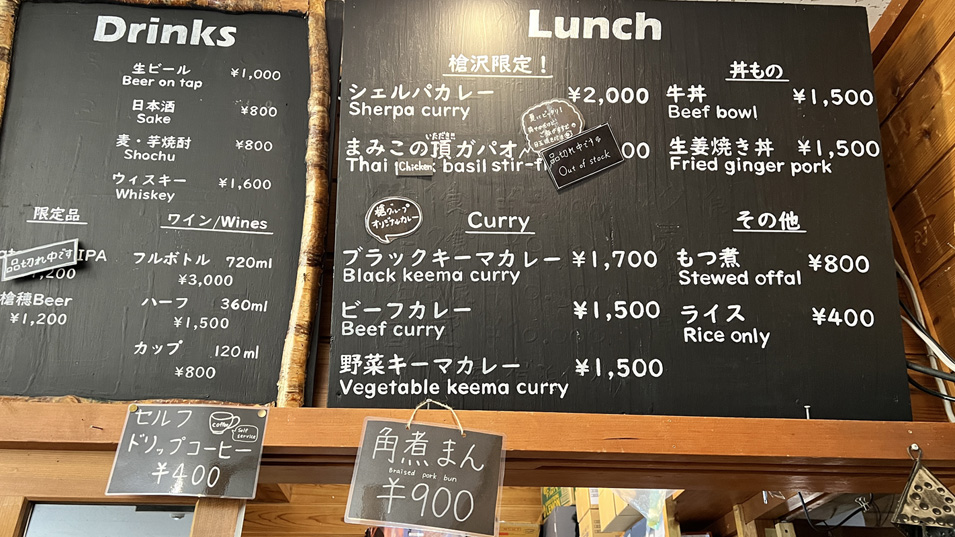 Drinks
生ビール ¥1,000
Beer on tap
日本酒 ¥800
Sake
麦・芋焼酎 ¥800
Shochu
ウィスキー ¥1,600
Whiskey
限定品
品切れ中です IPA
槍穂Beer
¥1,200
ワイン/Wines
フルボトル 720ml
¥3,000
ハーフ 360ml
¥1,500
カップ 120ml
¥800
Lunch
槍沢限定!
シェルパカレー ¥2,000
Sherpa curry
いただき
まみこの頂ガパオ
Thai Chicken basil stir-f
品切れ中です
Out of stock
槍グループ
オリジナルカレー
Curry
ブラックキーマカレー ¥1,700
Black keema curry
ビーフカレー ¥1,500
Beef curry
野菜キーマカレー ¥1,500
Vegetable keema curry
丼もの
牛丼 ¥1,500
Beef bowl
生姜焼き丼 ¥1,500
Fried ginger pork
その他
もつ煮 ¥800
Stewed offal
ライス ¥400
Rice only
セルフ
coffee
Self service
ドリップコーヒー
¥400
角煮まん
Braised pork bun
¥900